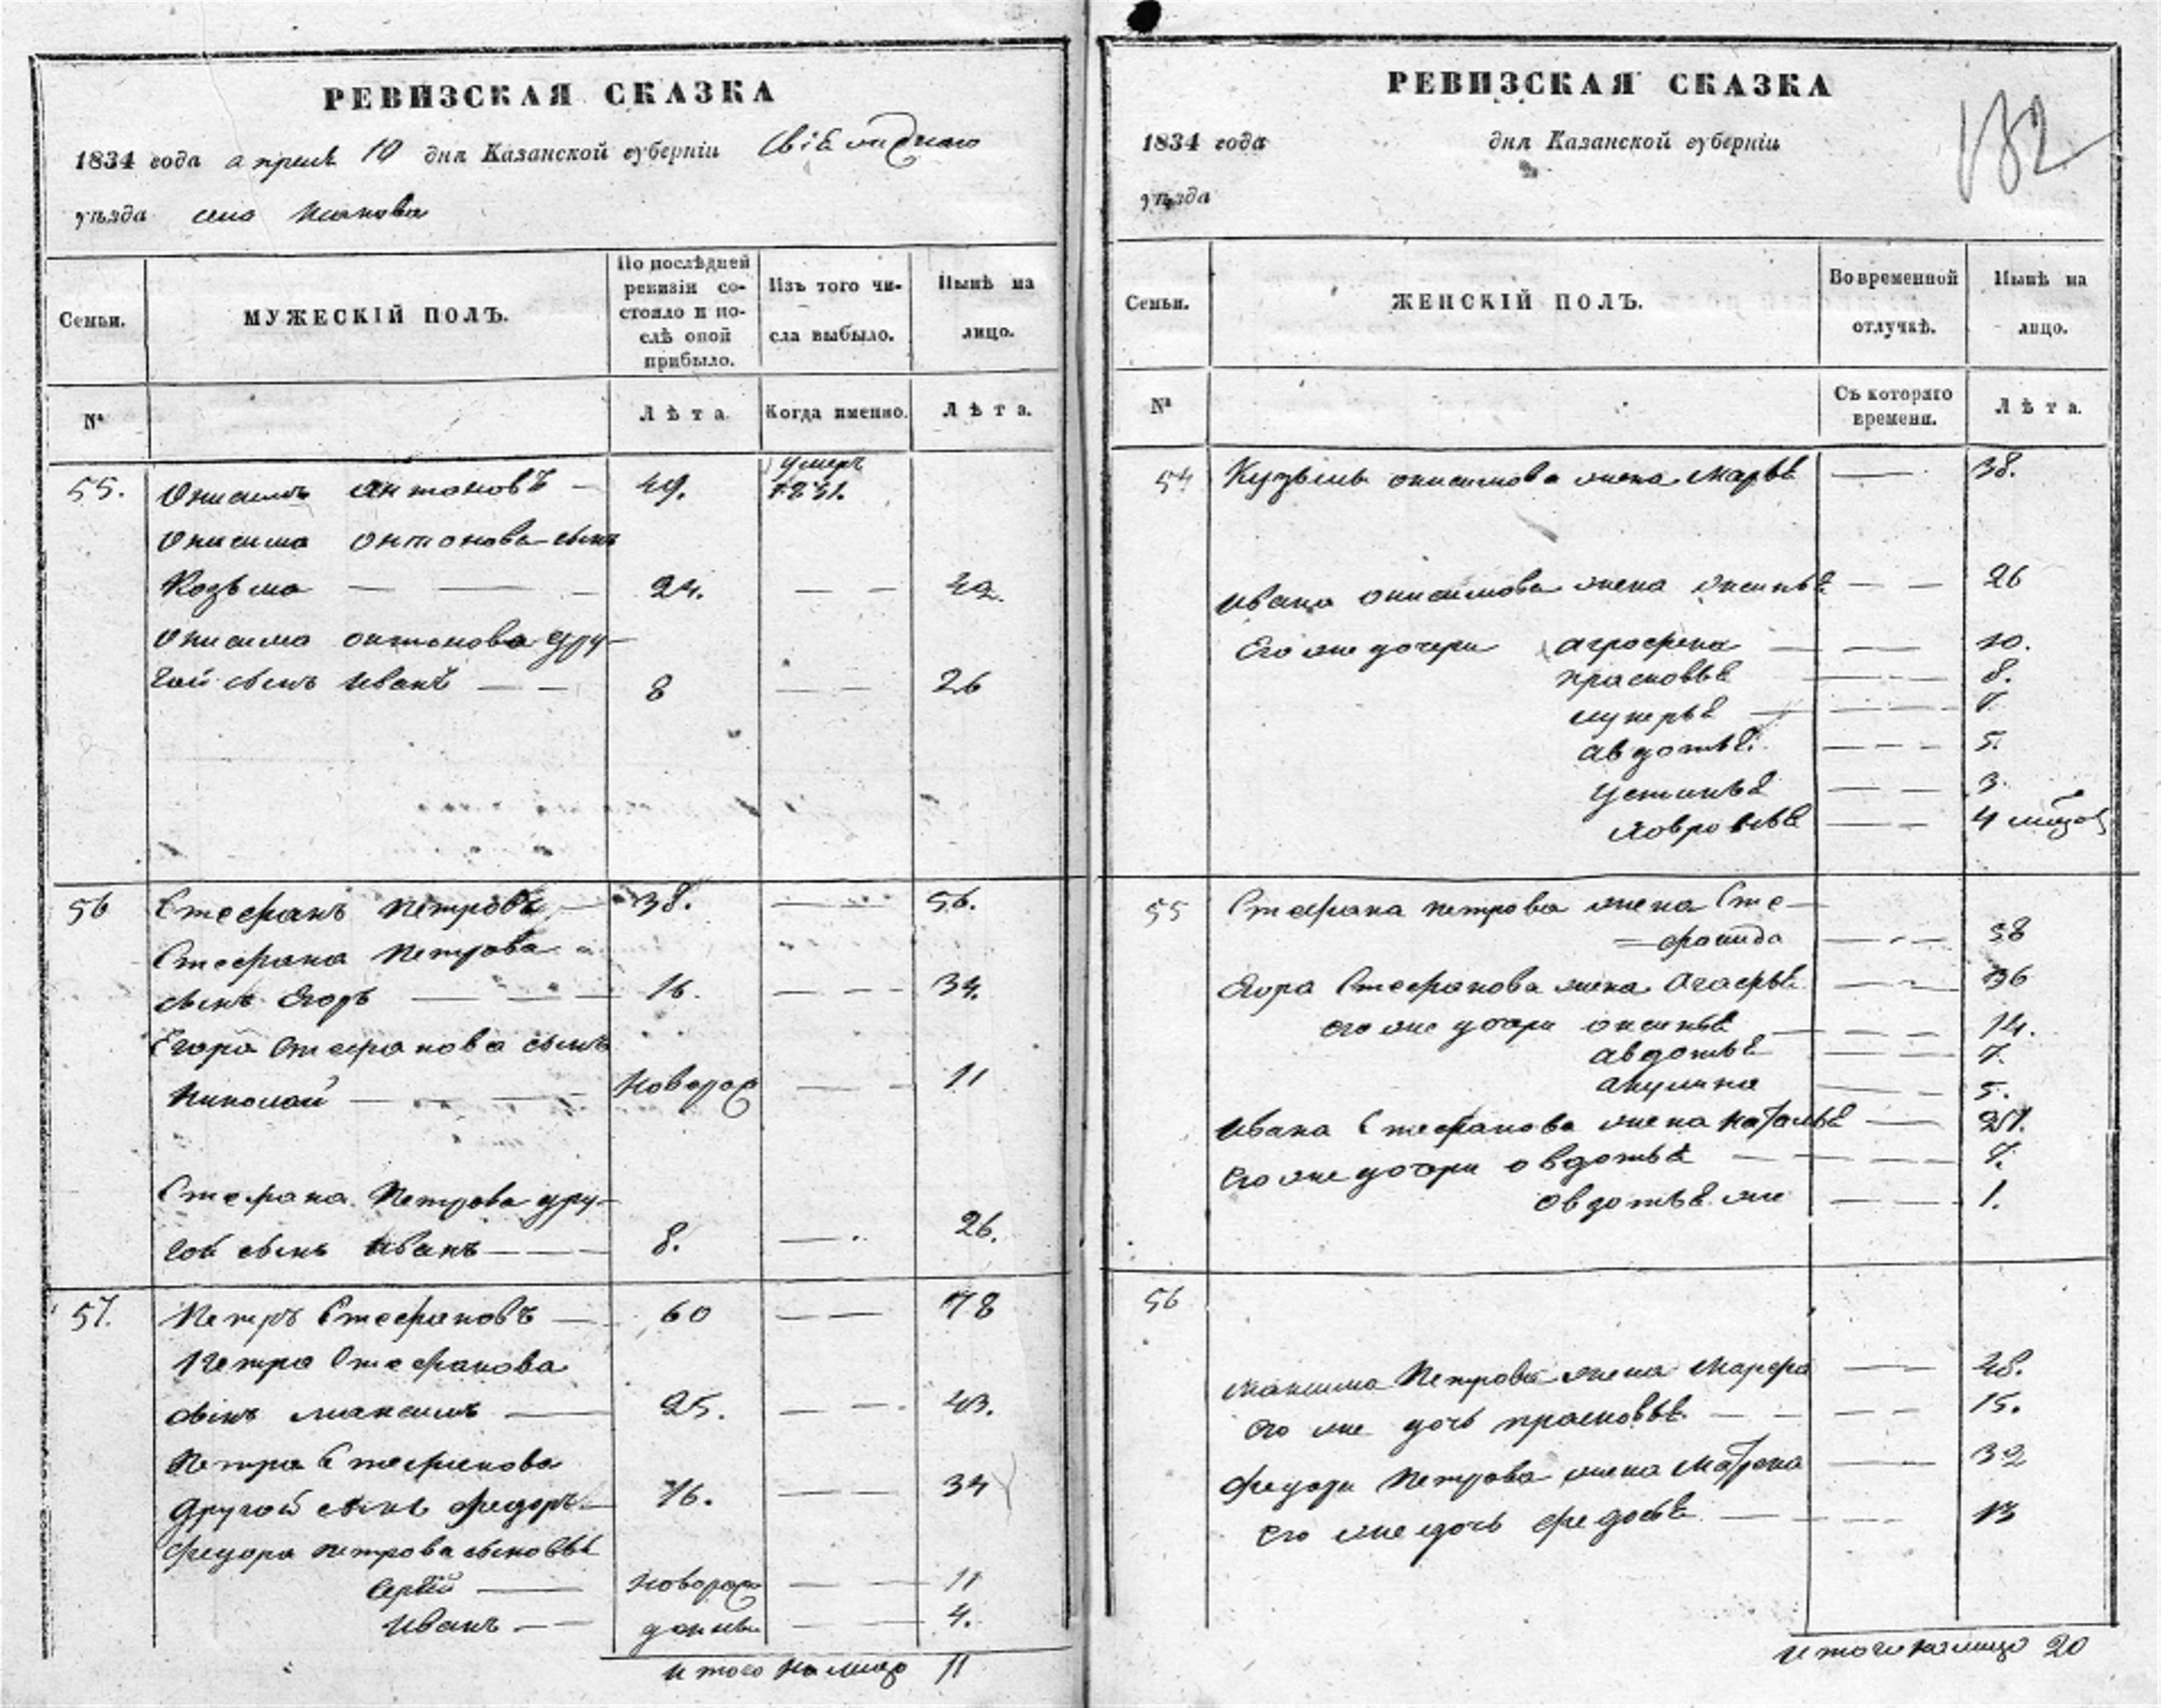 РЕВИЗСКАЯ СКАЗКА
1834 года апреля 10 дня Казанской губерніи Свіяжскаго
уѣзда села
Семьи.
МУЖЕСКІЙ ПОЛЪ.
По послѣдней ревизіи со-
стояло и по-
слѣ оной
прибыло.
Изъ того чи-
сла выбыло.
Нынѣ на
лицо.
№
Лѣта.
Когда именно.
Лѣта.
55. Онисимъ антоновъ — 49. умеръ 1831.
Онисима онтонова сынъ
Козьма — 24. — 42.
Онисима онтонова дру-
гой сынъ Иванъ — 8 — 26
56 Стефанъ Петровъ — 38. — 56.
Стефана Петрова
сынъ Егоръ — 16. — 34.
Егора Стефанова сынъ
Николай — новорож — 11
Стефана Петрова дру-
гой сынъ Иванъ — 8. — 26.
57. Петръ Стефановъ — 60 — 78
Петра Стефанова
сынъ максимъ — 25. — 43.
Петра Стефанова
другой сынъ федоръ — 16. — 34
федора петрова сыновья
Сергей — новорож — 11
Иванъ — 4.
итого на лицо 11
РЕВИЗСКАЯ СКАЗКА
132
1834 года дня Казанской губерніи
уѣзда
Семьи.
ЖЕНСКІЙ ПОЛЪ.
Во временной
отлучкѣ.
Нынѣ на
лицо.
№
Съ котораго
времени.
Лѣта.
54 Кузьмы онисимова жена марья — 38.
Ивана онисимова жена — 26
Его же дочери агрофена — 10.
прасковья — 8.
лукерья — 7
авдотья — 5.
устинья — 3.
4
55 Стефана петрова жена Сте-
=фанида — 58
Егора Стефанова жена Агафья — 36
его же дочери оксинья — 14.
авдотья — 7.
акулина — 5.
Ивана Стефанова жена наталья — 27.
Его же дочери овдотья — 7.
овдотья же — 1.
56
максима Петрова жена Марфа — 48.
его же дочь прасковья — 15.
федора Петрова жена Матрена — 32
его же дочь федосья — 13
Итого на лицо 20